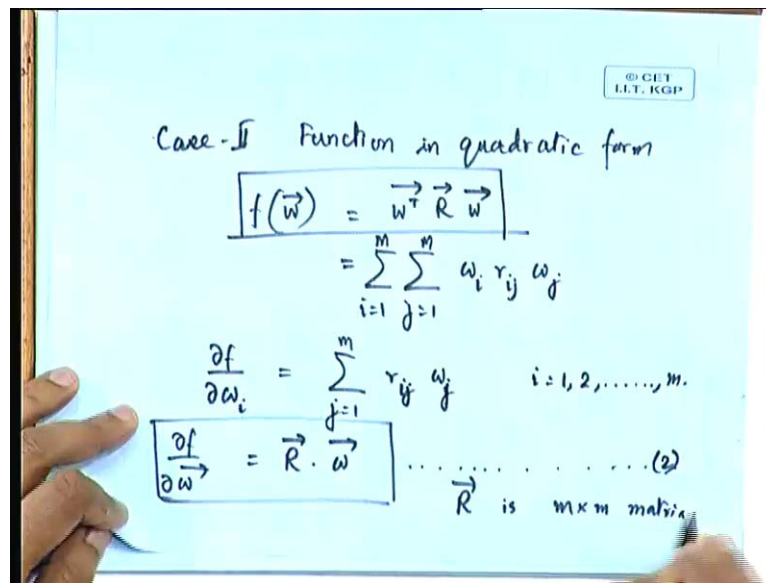 © CET
I.I.T. KGP
Case-II Function in quadratic form
f(w⃗) = w⃗ᵀ R⃗ w⃗
= ∑_{i=1}^{m} ∑_{j=1}^{m} w_i r_{ij} w_j
∂f/∂w_i = ∑_{j=1}^{m} r_{ij} w_j i = 1, 2, ......, m.
∂f/∂w⃗ = R⃗ . w⃗ .............(2)
R⃗ is m×m matrix